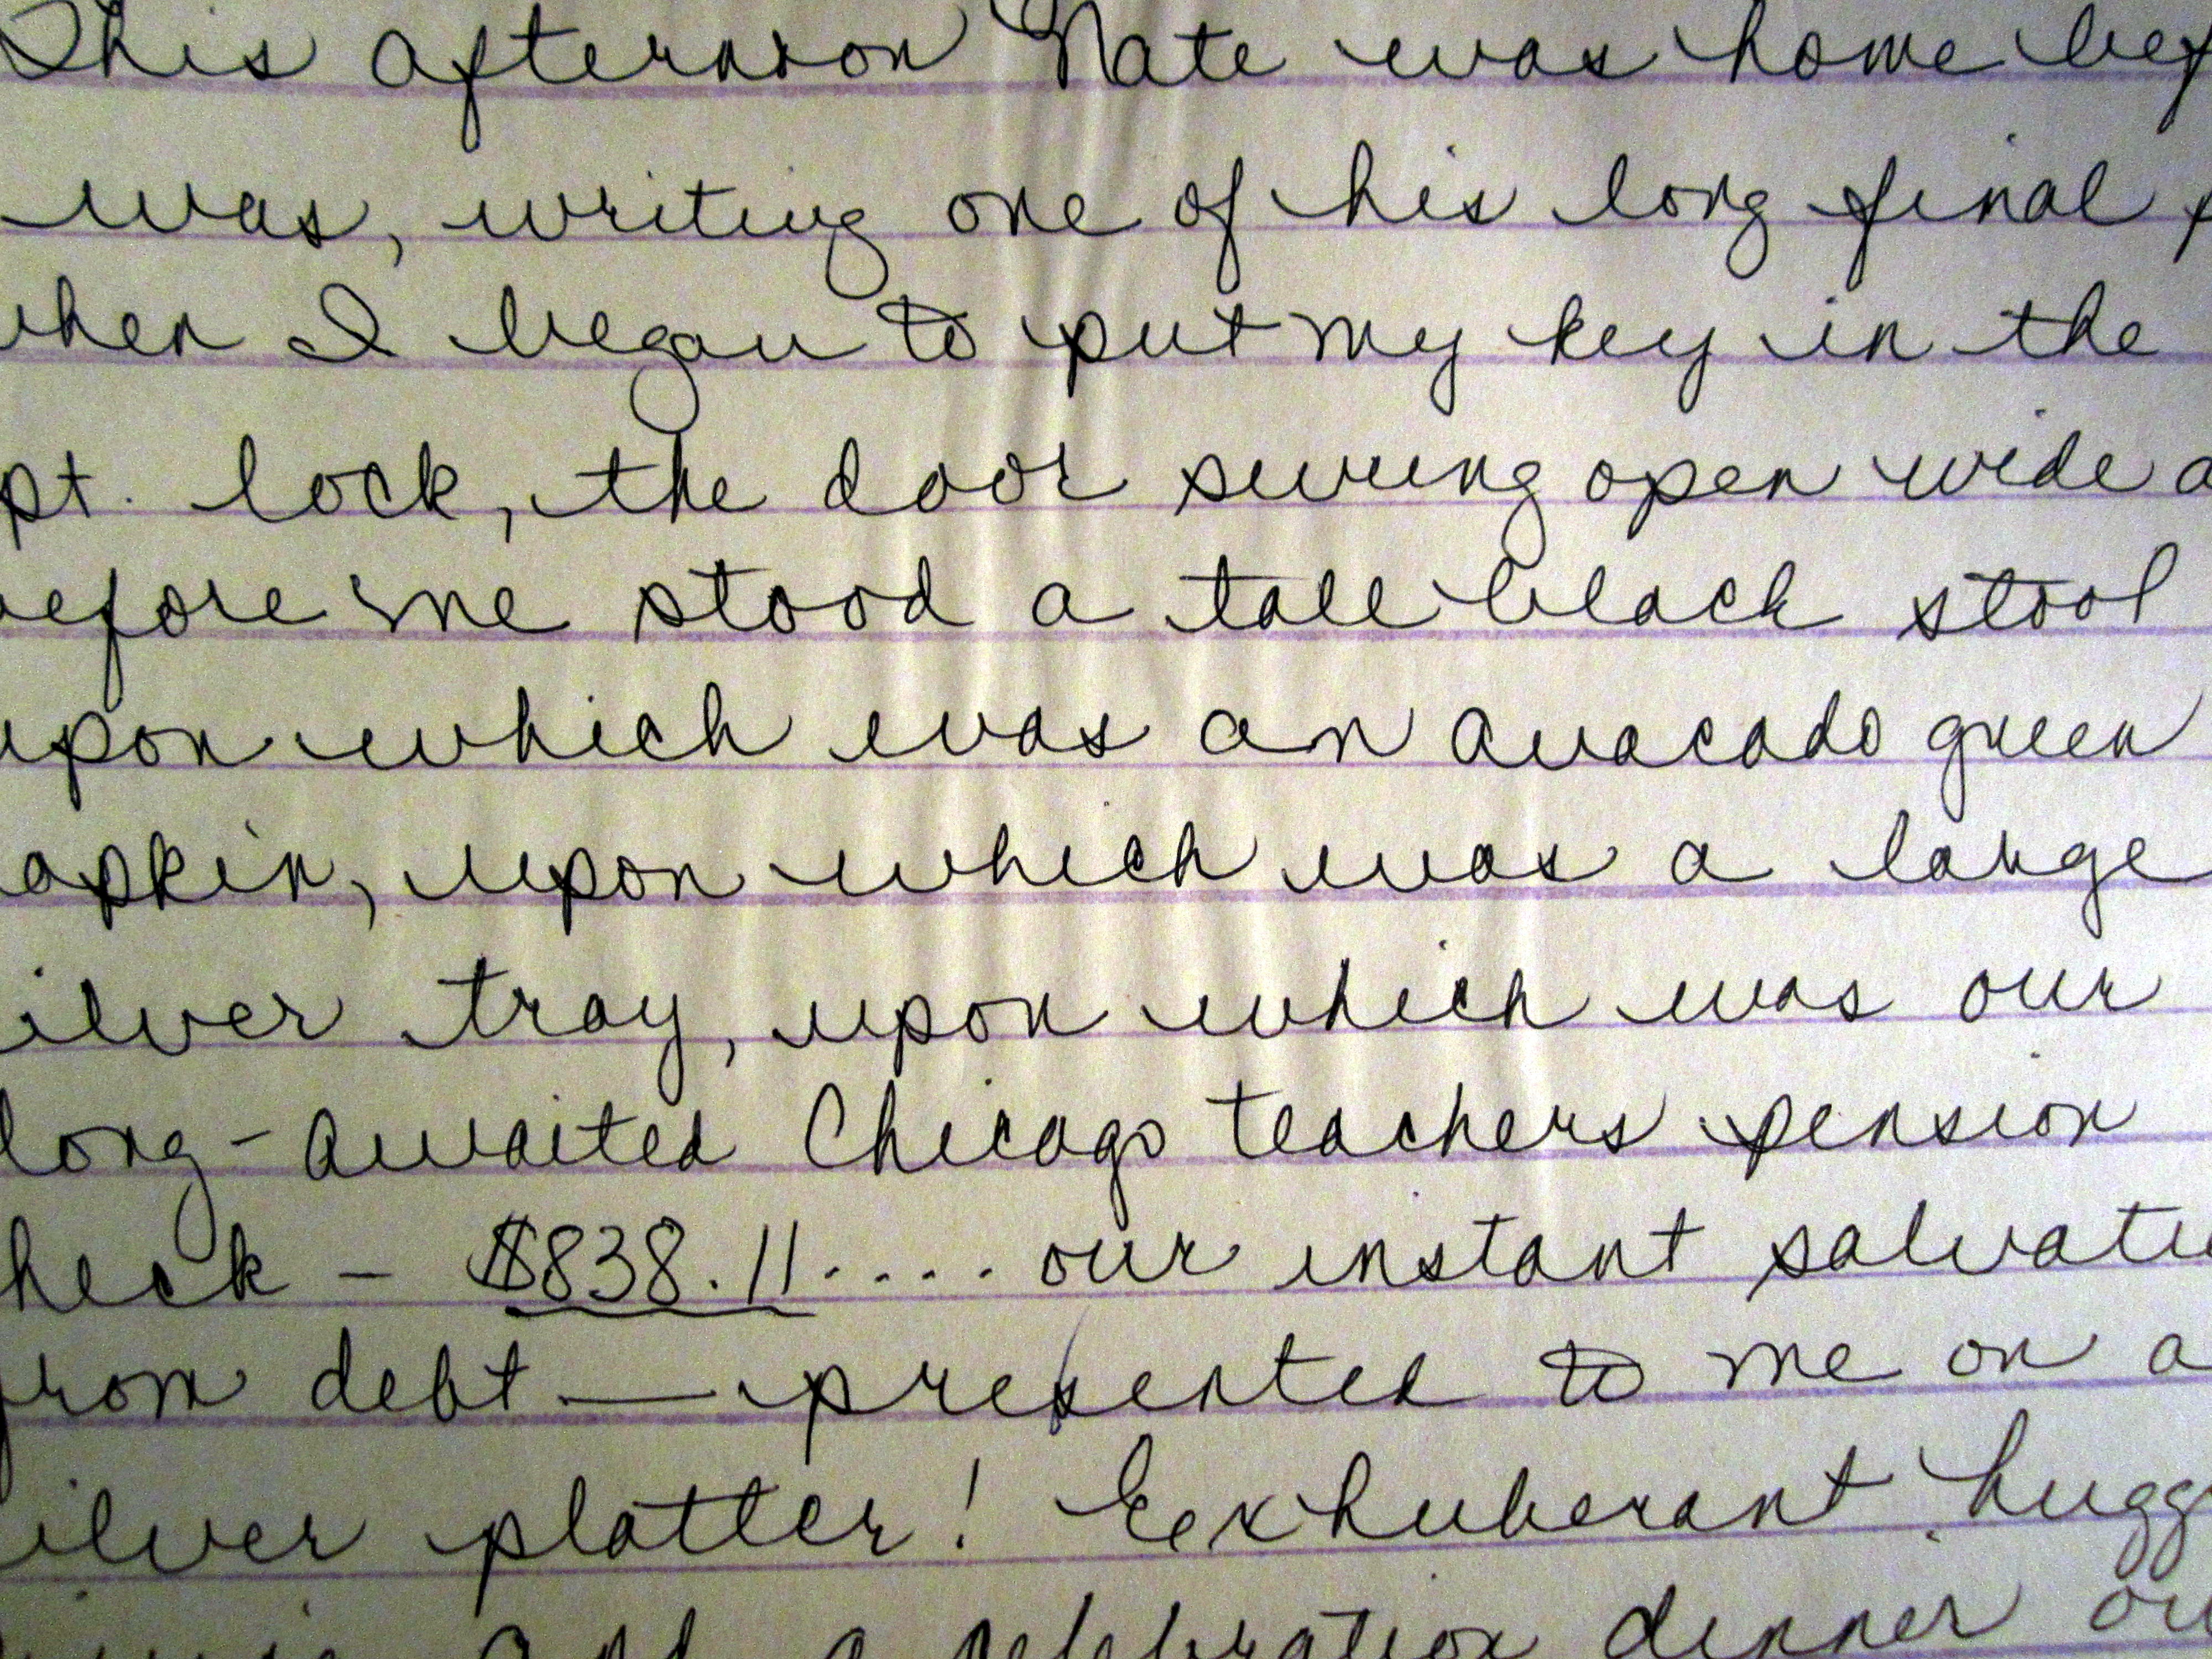 This afternoon Nate was home bef
was, writing one of his long final p
when I began to put my key in the
pt. lock, the door swung open wide a
before me stood a tall black stool
upon which was an avacado green
apkin, upon which was a large
ilver tray, upon which was our
long-awaited Chicago teachers pension
heck - $838.11.... our instant salvati
from debt — presented to me on a
ilver platter! Eexhuberant hugg
and a celebration dinner ou